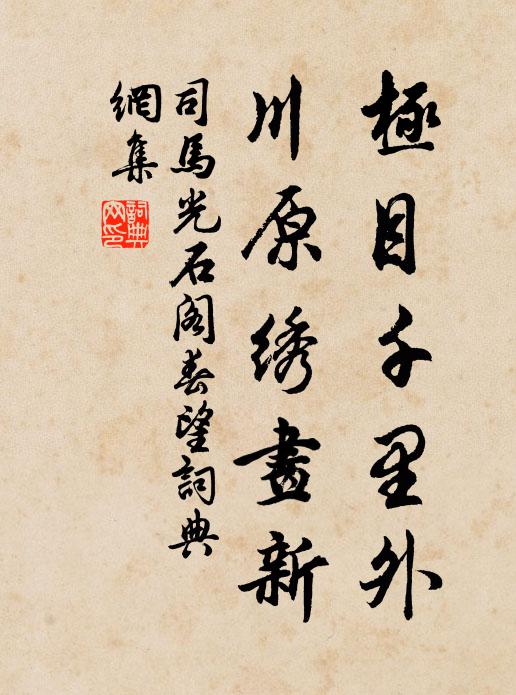 極目千里外
川原綉畫新
司馬光石閣春望詞典
網集
詞典
网印